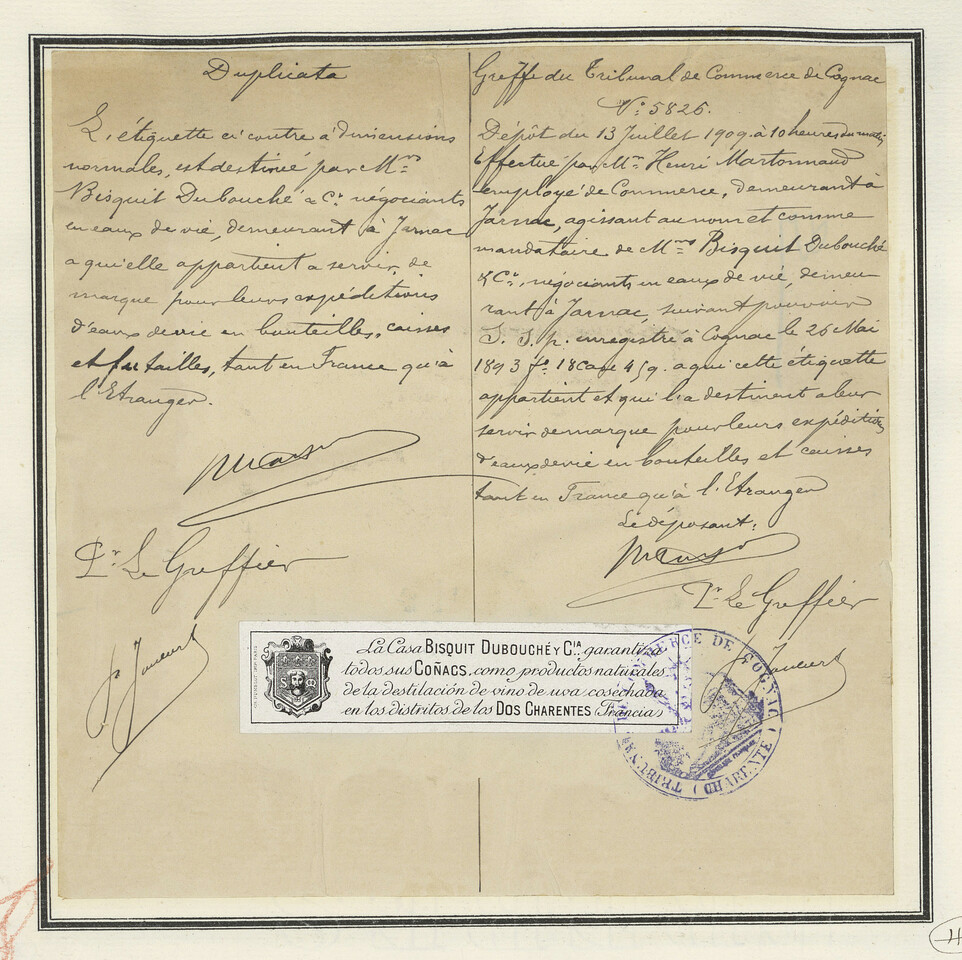 Duplicata
L'étiquette ci contre à dimensions
normales, est destinée par Mrs
Bisquit Dubouché & Cie négociants
en eaux de vie, demeurant à Jarnac
a qu'elle appartient a servir de
marque pour leurs expéditions
d'eaux de vie en bouteilles, caisses
et futailles, tant en France qu'à
l'Etranger.
Pr Le Greffier
Greffe du Tribunal de Commerce de Cognac
No 5826.
Dépôt du 13 Juillet 1909 à 10 heures du matin
Effectué par Mr Henri Martonnaud
employé de Commerce, demeurant à
Jarnac, agissant au nom et comme
mandataire de Mrs Bisquit Dubouché
& Cie négociants en eaux de vie, demeu
rant à Jarnac, suivant pouvoir
S. S. p. enregistré à Cognac le 26 Mai
1893 fo 18 Case 459. a qui cette étiquette
appartient et qui l'a destinent a leur
servir de marque pour leurs expéditions
d'eaux de vie en bouteilles et caisses
tant en France qu'à l'Etranger
Le déposant,
Pr Le Greffier
La Casa BISQUIT DUBOUCHÉ Y CIA. garantiza
todos sus COÑACS, como productos naturales
de la destilación de vino de uva cosechada
en los distritos de los DOS CHARENTES (Francia)
TRIBUNAL DE COMMERCE DE COGNAC (CHARENTE)